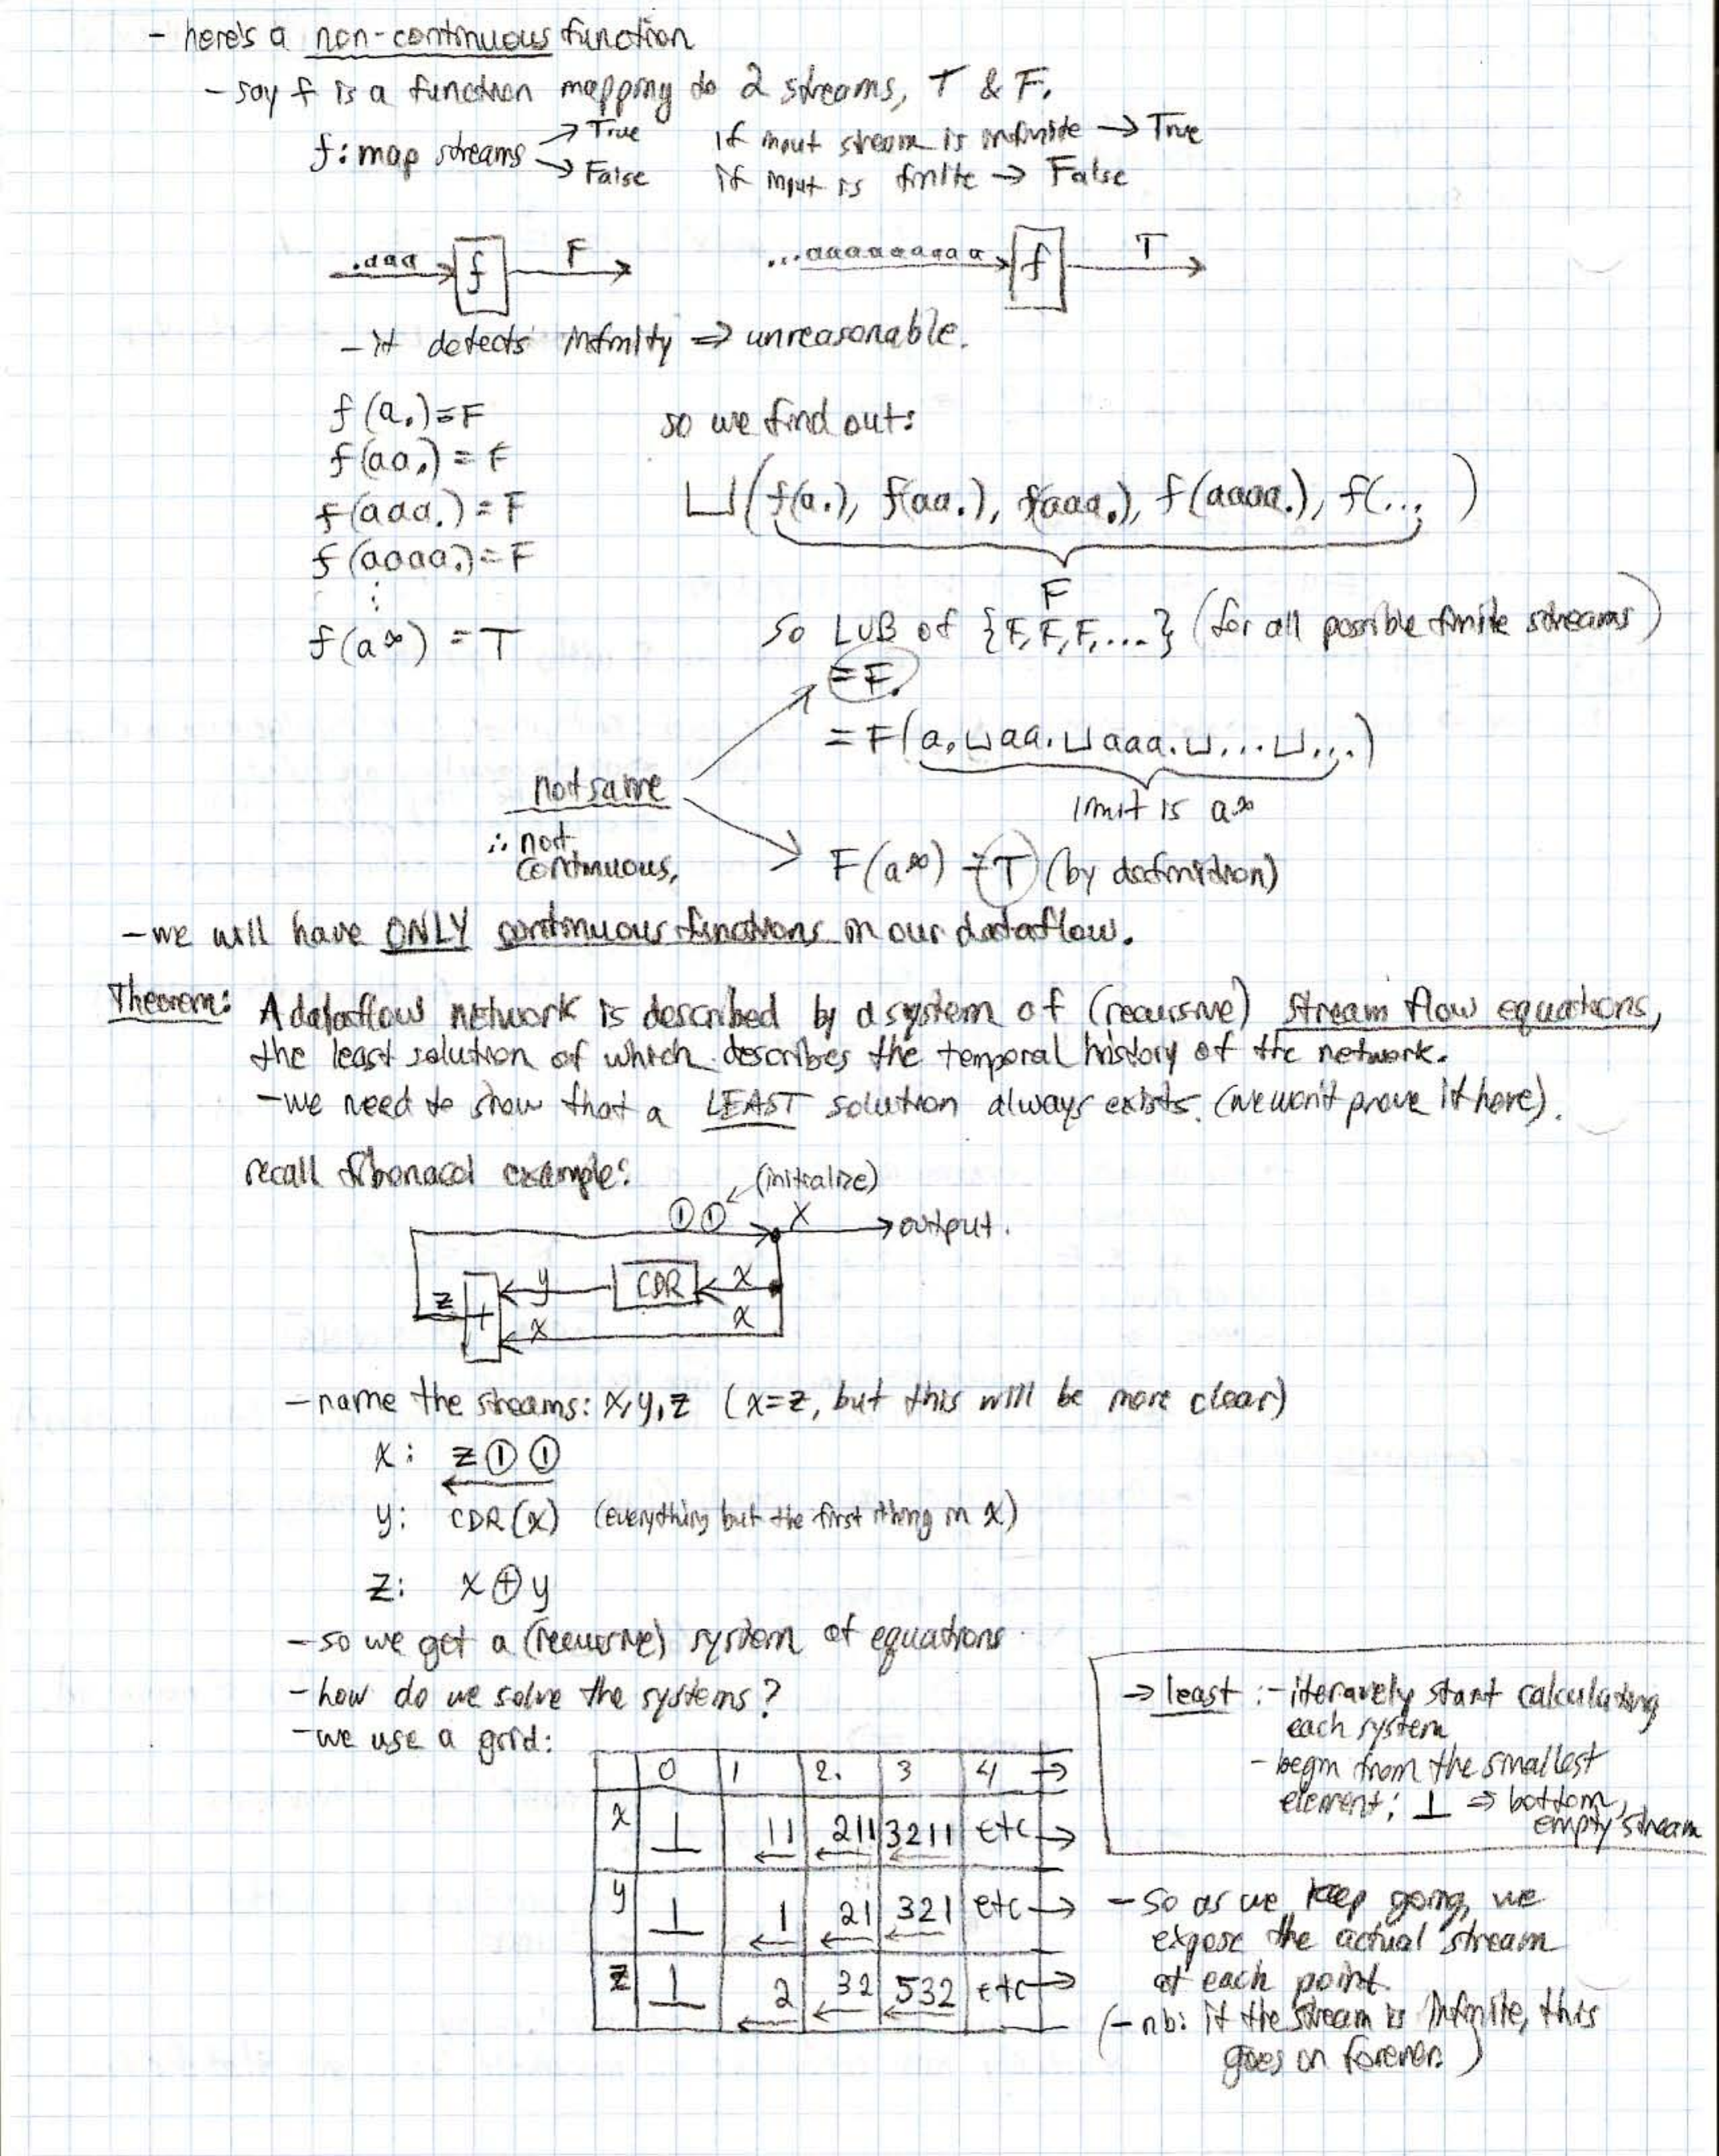 - here's a non-continuous function
- say f is a function mapping to 2 streams, T & F.
f: map streams → True
→ False
if input stream is infinite → True
if input is finite → False
.aaa → f F →
...aaaaaaaaa → f T →
- it detects infinity ⇒ unreasonable.
f(a.) = F
f(aa.) = F
f(aaa.) = F
f(aaaa.) = F
⋮
f(a∞) = T
so we find out:
⊔(f(a.), f(aa.), f(aaa.), f(aaaa.), f(...)
F
so LUB of {F,F,F,...} (for all possible finite streams)
= F.
= F(a. ⊔ aa. ⊔ aaa. ⊔ ... ⊔ ...)
limit is a∞
not same
∴ not
continuous.
F(a∞) = T (by definition)
- we will have ONLY continuous functions in our dataflow.
Theorem: A dataflow network is described by a system of (recursive) stream flow equations,
the least solution of which describes the temporal history of the network.
- we need to show that a LEAST solution always exists. (we won't prove it here).
recall fibonacci example:
(initialize)
① ① X → output.
z + y CDR x
x x
- name the streams: x, y, z (x=z, but this will be more clear)
x: z ① ①
y: CDR(x) (everything but the first thing in x)
z: x ⊕ y
- so we get a (recursive) system of equations
- how do we solve the systems?
- we use a grid:
0 1 2. 3 4 →
x ⊥ 11 211 3211 etc →
y ⊥ 1 21 321 etc →
z ⊥ 2 32 532 etc →
→ least : - iteravely start calculating
each system
- begin from the smallest
element: ⊥ ⇒ bottom,
empty stream
- so as we keep going, we
expose the actual stream
at each point.
(- nb: if the stream is infinite, this
goes on forever.)